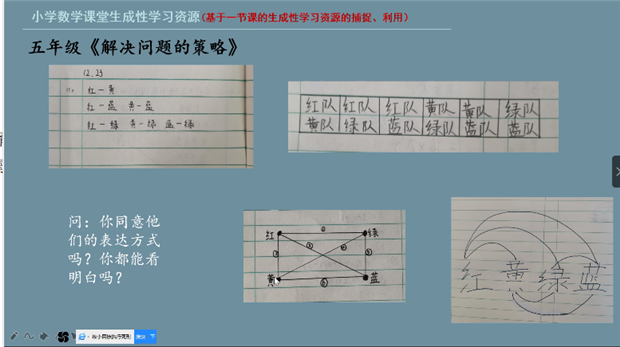 小学数学课堂生成性学习资源(基于一节课的生成性学习资源的捕捉、利用)
五年级《解决问题的策略》
12.23
红一黄
红一蓝 黄一蓝
红一绿 黄一绿 蓝一绿
红队 红队 红队 黄队 黄队 绿队
黄队 绿队 蓝队 绿队 蓝队 蓝队
问：你同意他
们的表达方式
吗？你都能看
明白吗？
红 绿
黄 蓝
红 黄 绿 蓝